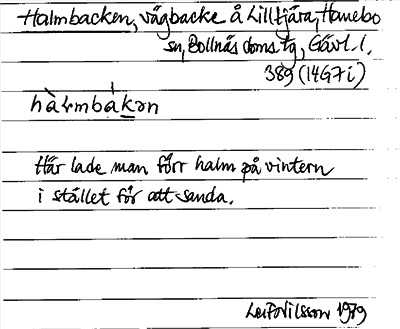 Halmbacken, vägbacke å Lilltjära, Hanebo
sn, Bollnäs doms. tg, Gävl. l.
389 (14G7i)
hàʟmbákən
Här lade man förr halm på vintern
i stället för att sanda.
Leif Nilsson 1989